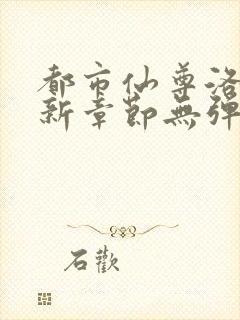 都市仙尊洛
新章節無彈
石歡